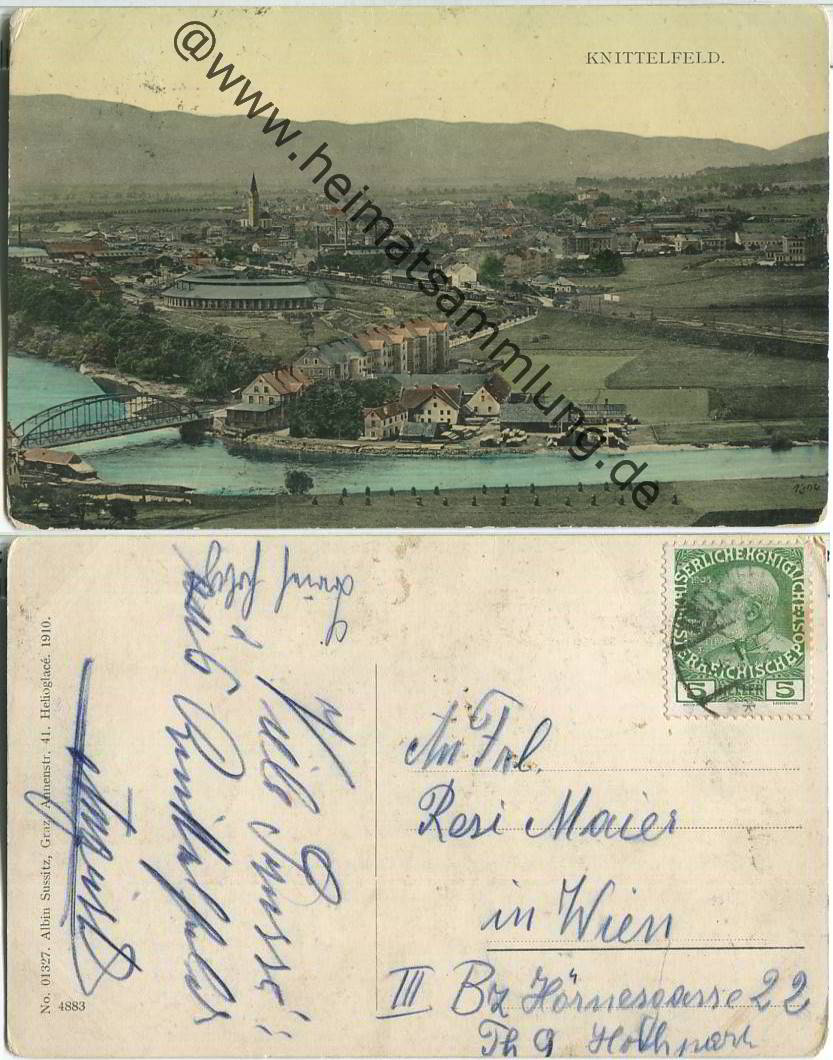 KNITTELFELD.
@www.heimatsammlung.de
1304
KAISERLICHE KÖNIGLICHE
ÖSTERREICHISCHE POST
1908
5 HELLER 5
An Frl.
Resi Maier
in Wien
III Bz Hörnesgasse 22
Th 9
Viele Grüsse
aus Knittelfeld
August
No. 01327. Albin Sussitz, Graz, Annenstr. 41. Helioglacé. 1910.
4883